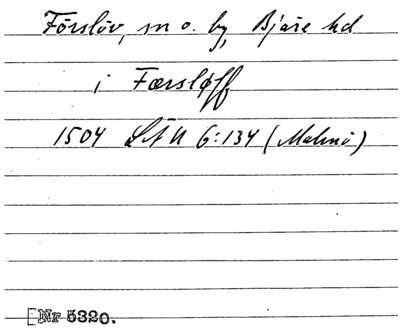 Förslöv, sn o. by, Bjäre hd
i Førsløff
1504 LÅU 6:134 (Malmö)
[Nr 5320.